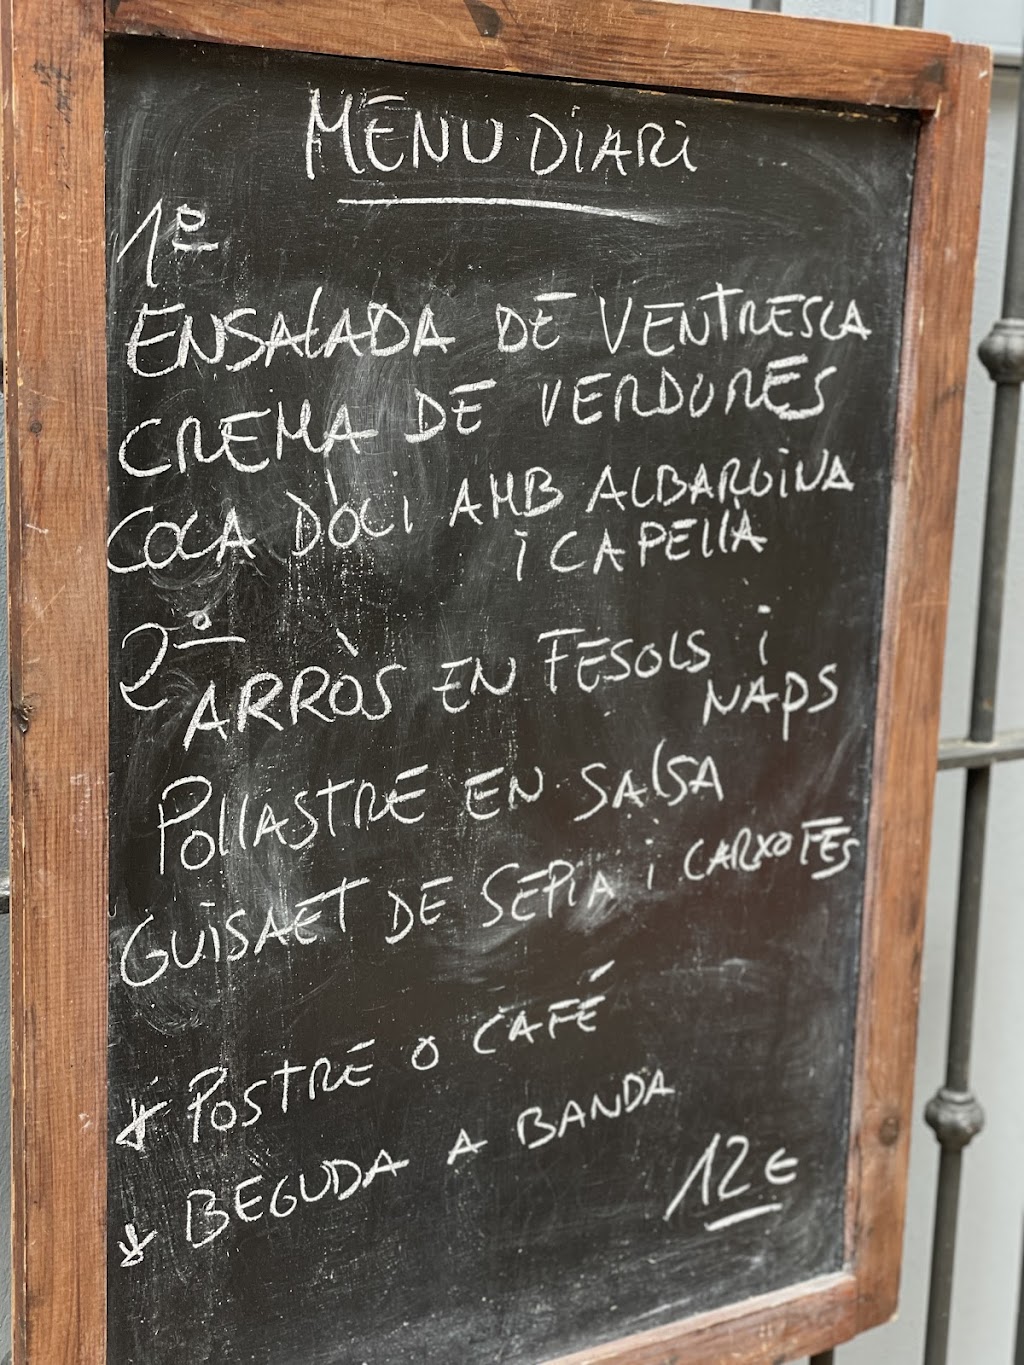 MENU DIARI
1º
ENSALADA DE VENTRESCA
CREMA DE VERDURES
COCA DÒLI AMB ALBARGINA
I CAPELLÀ
2º
ARRÒS EN FESOLS i
NAPS
POLLASTRE EN SALSA
GUISAET DE SEPIA i CARXOFES
* POSTRE O CAFÉ
* BEGUDA A BANDA
12€